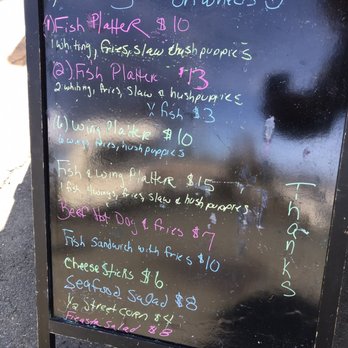 on wheels
(1) Fish Platter $10
1 whiting, fries, slaw & hushpuppies
(2) Fish Platter $13
2 whiting, fries, slaw & hushpuppies
X fish $3
(6) Wing Platter $10
6 wings, fries, hushpuppies
Fish & wing Platter $15
1 fish 4 wings, fries, slaw & hushpuppies
Beef Hot Dog & fries $7
Fish Sandwich with fries $10
Cheese Sticks $6
Seafood Salad $8
1/2 Street Corn $4
Salad $5
Thanks